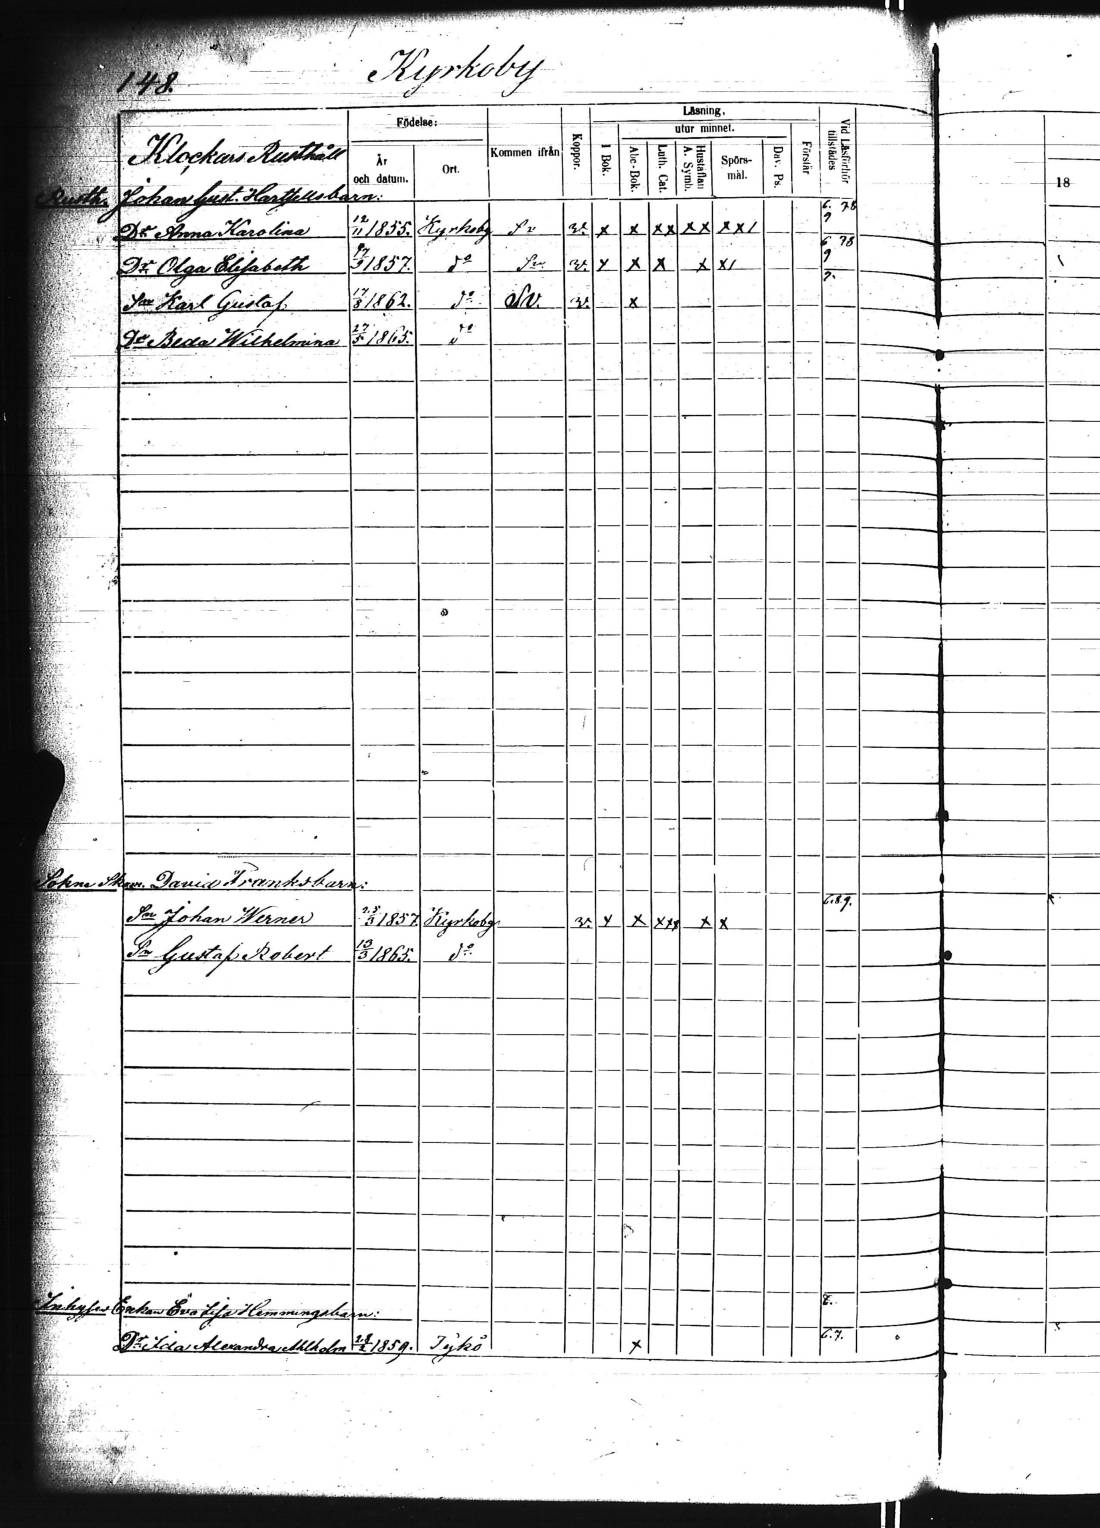 148.
Kyrkoby
Klockars Rusthåll
Födelse:
År och datum.
Ort.
Kommen ifrån
Koppor.
Läsning.
I Bok.
utur minnet.
Abc-Bok.
Luth. Cat.
Hustaflan A. Symb.
Spörsmål.
Dav. Ps.
Förstår
Vid Läsförhör tillstädes
18
Rusth. Johan Gust. Hartzells barn:
Dr Anna Karolina 12/11 1855. Kyrkoby Sv v. x x xx xx xx1 6. 78 9
Dr Olga Elisabeth 1857. do Sv. v. x x x x x1 6 78 9
7.
Son Karl Gustaf 17/8 1862. do Sv. v. x
Dr Beda Wilhelmina 27/5 1865. do
Sokne Skom. David Franks barn:
Son Johan Werner 25/3 1857. Kyrkoby v. x x xxx x x 6.8.9.
Son Gustaf Robert 13/3 1865. do
Inhyses Enkan Eva Lisa Hemmings barn: 7.
Dr Ida Alexandra Ahlholm 28/2 1859. Tykö x 6.7.